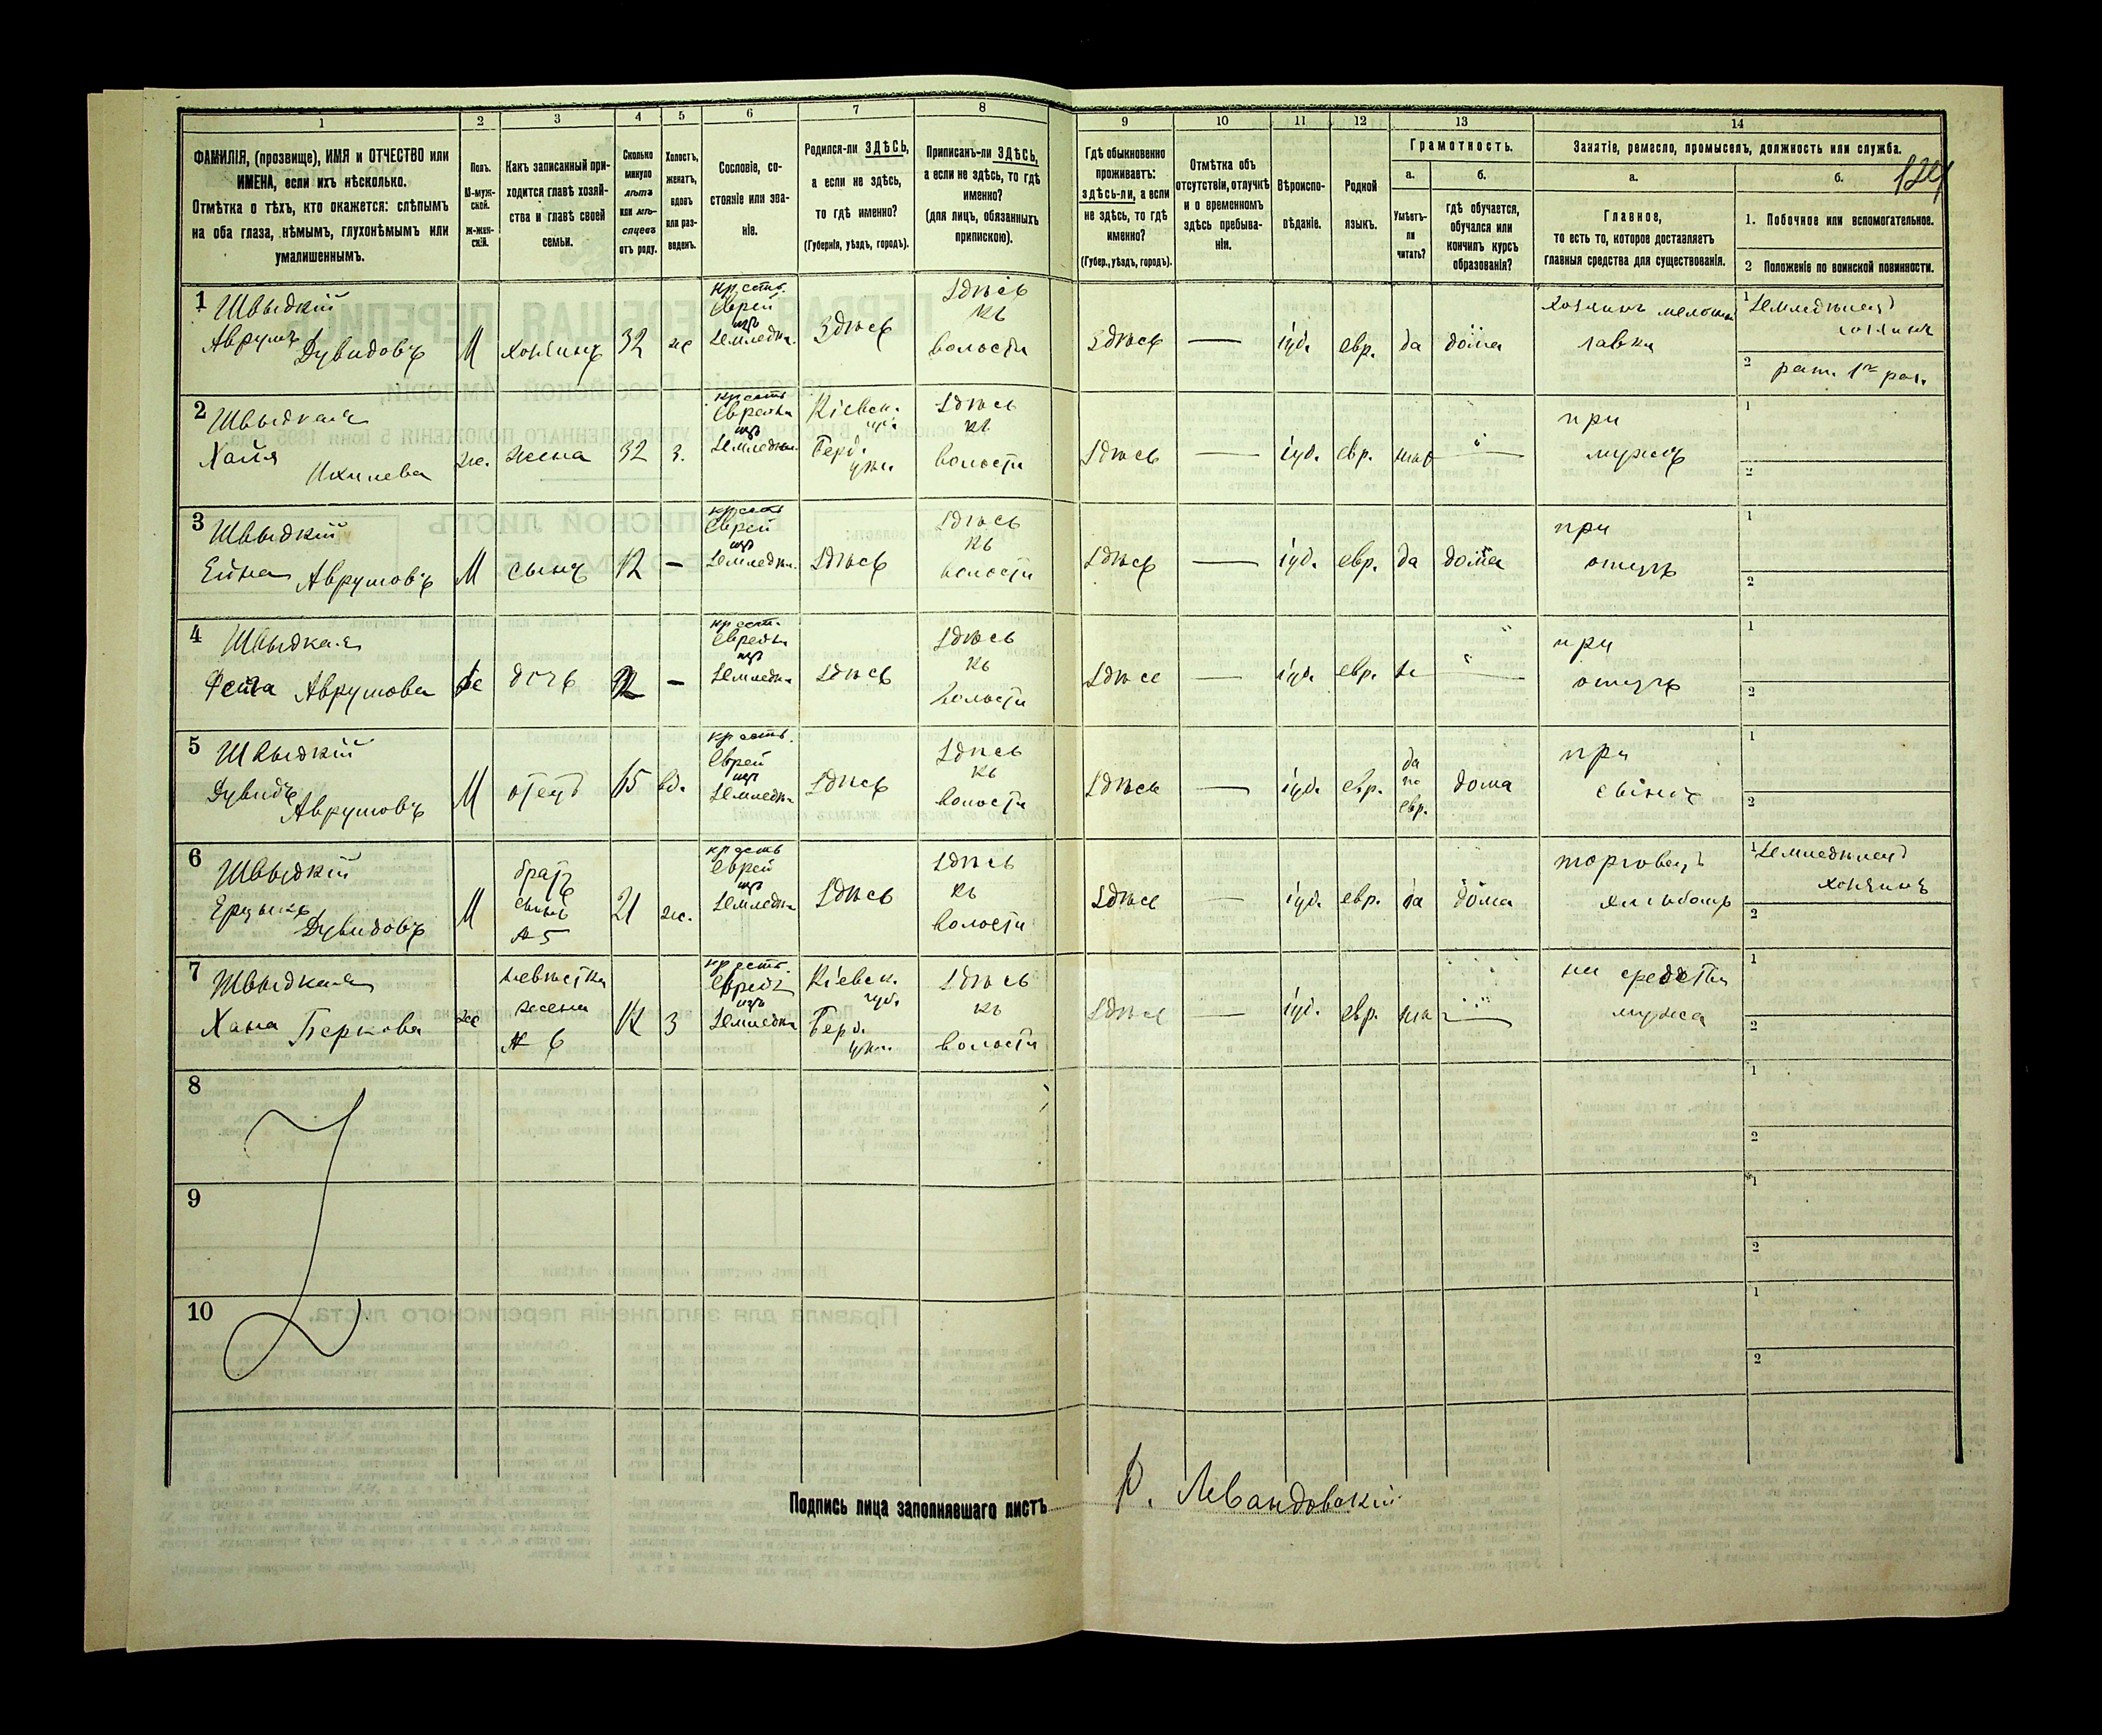 1 2 3 4 5 6 7 8 9 10 11 12 13 14
ФАМИЛІЯ, (прозвище), ИМЯ и ОТЧЕСТВО или
ИМЕНА, если ихъ нѣсколько.
Отмѣтка о тѣхъ, кто окажется: слѣпымъ
на оба глаза, нѣмымъ, глухонѣмымъ или
умалишеннымъ.
Полъ.
М-муж-
ской.
Ж-жен-
скій.
Какъ записанный при-
ходится главѣ хозяй-
ства и главѣ своей
семьи.
Сколько
минуло
лѣтъ
или мѣ-
сяцевъ
отъ роду.
Холостъ,
женатъ,
вдовъ
или раз-
веденъ.
Сословіе, со-
стояніе или зва-
ніе.
Родился-ли ЗДѢСЬ,
а если не здѣсь,
то гдѣ именно?
(Губернія, уѣздъ, городъ).
Приписанъ-ли ЗДѢСЬ,
а если не здѣсь, то гдѣ
именно?
(для лицъ, обязанныхъ
припискою).
Гдѣ обыкновенно
проживаетъ:
здѣсь-ли, а если
не здѣсь, то гдѣ
именно?
(Губер., уѣздъ, городъ).
Отмѣтка объ
отсутствіи, отлучкѣ
и о временномъ
здѣсь пребыва-
ніи.
Вѣроиспо-
вѣданіе.
Родной
языкъ.
Грамотность.
а.
Умѣетъ-
ли
читать?
б.
гдѣ обучается,
обучался или
кончилъ курсъ
образованія?
Занятіе, ремесло, промыселъ, должность или служба.
а.
Главное,
то есть то, которое доставляетъ
главныя средства для существованія.
б.
1. Побочное или вспомогательное.
2 Положеніе по воинской повинности.
1 Швыдкій
Аврумъ Дувидовъ
М
хозяинъ
32
ж
крестъ.
Еврей
изъ
Земледѣл.
Здѣсь
Здѣсь
къ
волости
Здѣсь
—
іуд.
евр.
да
дома
хозяинъ мелочной
лавки
1 Земледѣлецъ
хозяинъ
2 рат. 1го раз.
2 Швыдкая
Хая
Ихилева
ж.
жена
32
з.
крестъ
Еврейка
изъ
Земледѣл.
Кіевск.
губ.
Берд.
уѣз.
Здѣсь
къ
волости
Здѣсь
—
іуд.
евр.
нѣт
—
при
мужѣ
1
2
3 Швыдкій
Аврумовъ
М
сынъ
12
—
крестъ
Еврей
изъ
Земледѣл.
Здѣсь
Здѣсь
къ
волости
Здѣсь
—
іуд.
евр.
да
дома
при
отцѣ
1
2
4 Швыдкая
Аврумова
ж
дочь
—
крест.
Еврейка
изъ
Земледѣл
Здѣсь
Здѣсь
къ
Волости
Здѣсь
—
іуд.
евр.
—
при
отцѣ
1
2
5 Швыдкій
Дувидъ
Аврумовъ
М
отецъ
65
вд.
крестъ.
Еврей
изъ
Земледѣл
Здѣсь
Здѣсь
къ
волости
Здѣсь
—
іуд.
евр.
да
по
евр.
дома
при
сынѣ
1
2
6 Швыдкій
Дувидовъ
М
братъ
сынъ
№ 5
21
ж.
крестъ
Еврей
изъ
Земледѣл
Здѣсь
Здѣсь
къ
волости
Здѣсь
—
іуд.
евр.
да
дома
торговецъ
хлѣбомъ
1 Земледѣлецъ
хозяинъ
2
7 Швыдкая
Хана Беркова
ж
невѣстка
жена
№ 6
з
крестъ.
Еврейка
изъ
Земледѣл
Кіевск.
губ.
Берд.
уѣз.
Здѣсь
къ
волости
Здѣсь
—
іуд.
евр.
нѣт
—
на средства
мужа
1
2
8
1
2
9
1
2
10
1
2
Подпись лица заполнявшаго листъ
Р. Левандовскій